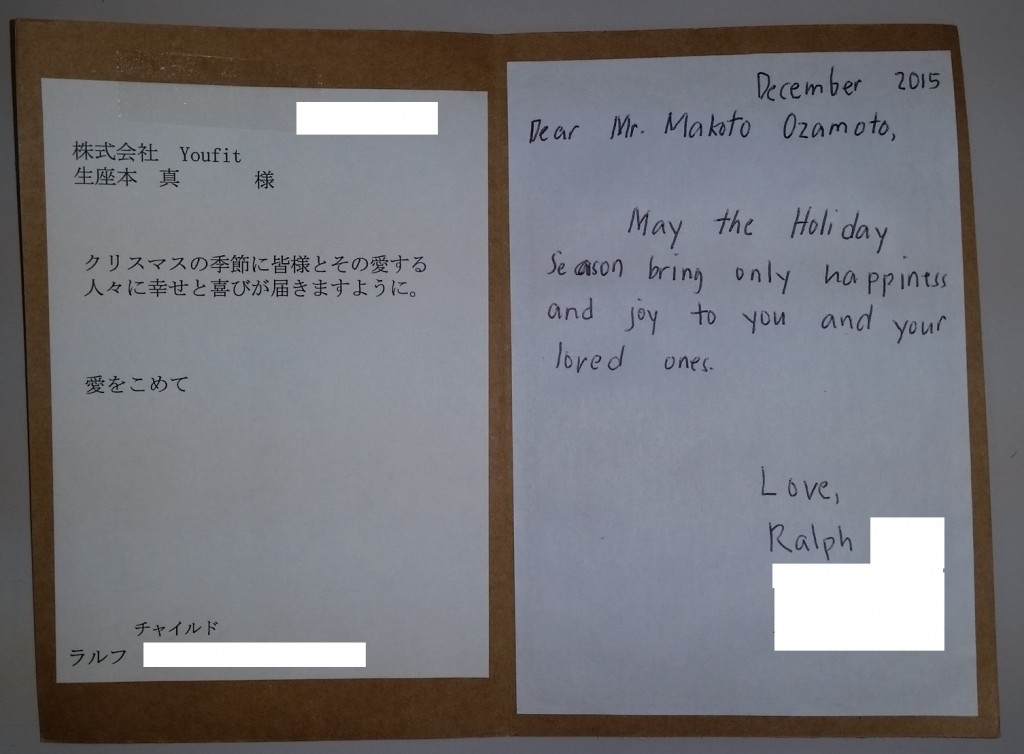 株式会社　Youfit
生座本　真　　　様
クリスマスの季節に皆様とその愛する
人々に幸せと喜びが届きますように。
愛をこめて
チャイルド
ラルフ
December 2015
Dear Mr. Makoto Ozamoto,
May the Holiday
Season bring only happiness
and joy to you and your
loved ones.
Love,
Ralph